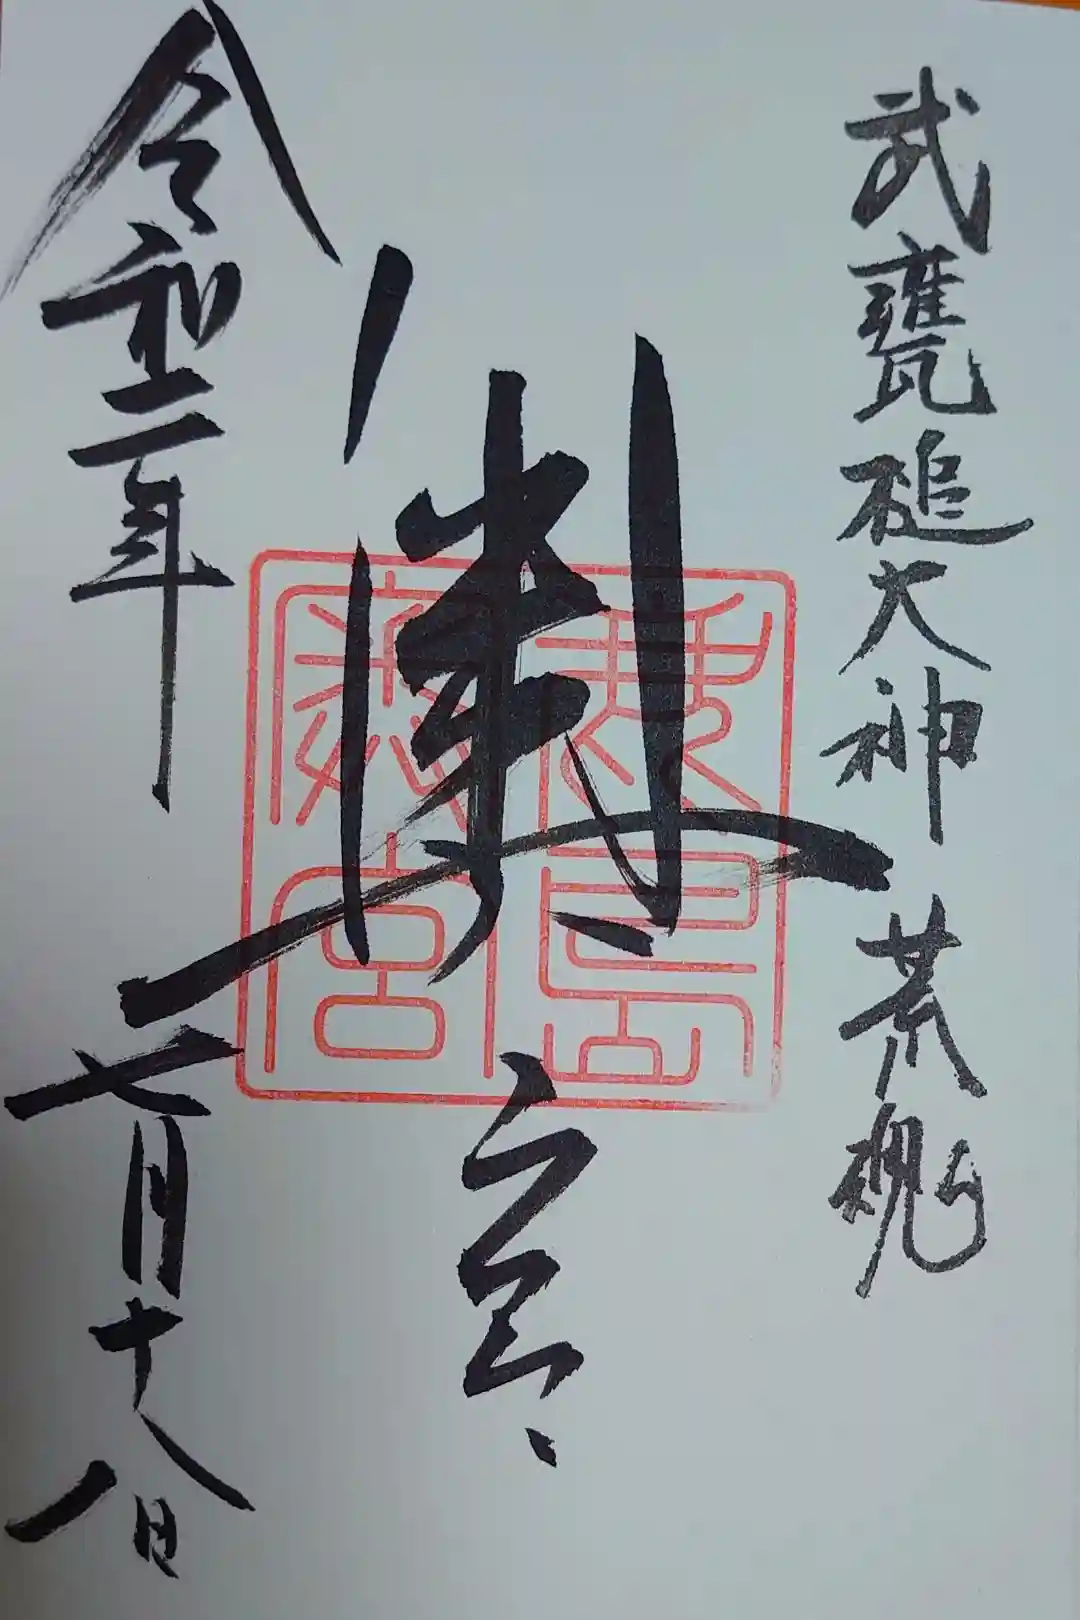 武甕槌大神 荒魂
奥宮
鹿島
奥宮
令和二年七月十八日